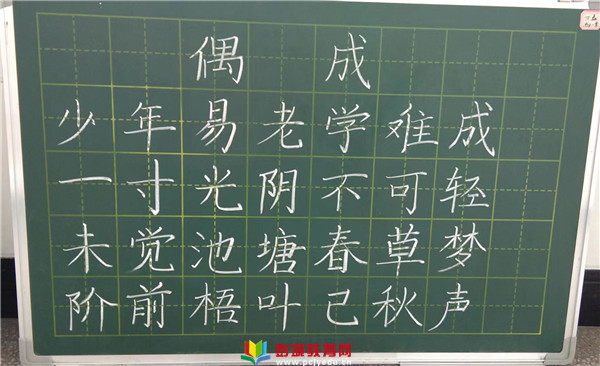 偶成
少年易老学难成
一寸光阴不可轻
未觉池塘春草梦
阶前梧叶已秋声
www.pcjyedu.cn